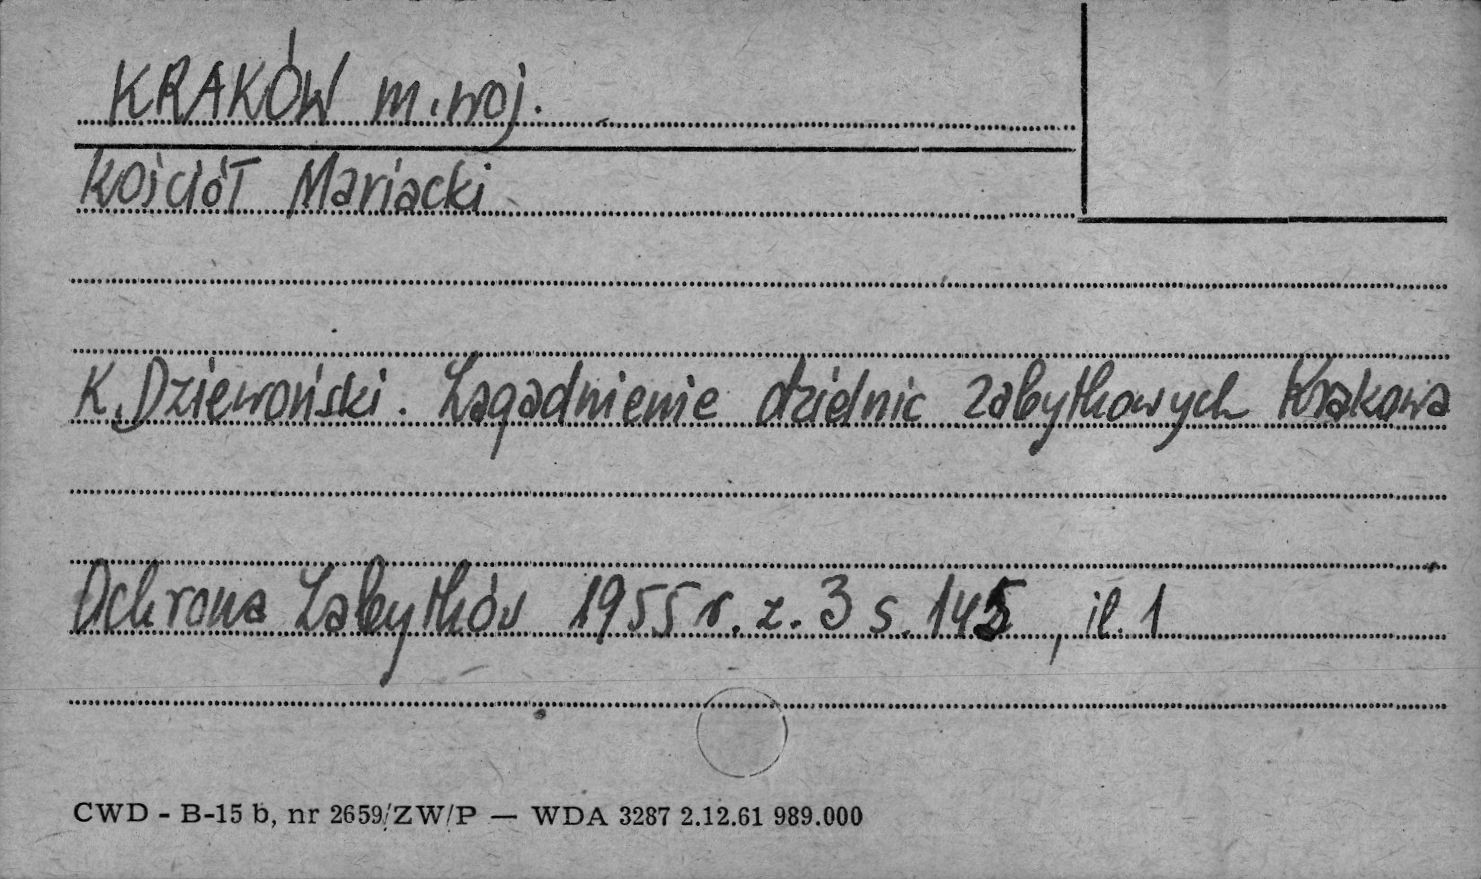 KRAKÓW m. woj.
Kościół Mariacki
K. Dziewoński. Zagadnienie dzielnic zabytkowych Krakowa
Ochrona Zabytków 1955 r. z. 3 s. 145, il. 1
CWD - B-15 b, nr 2659/ZW/P — WDA 3287 2.12.61 989.000